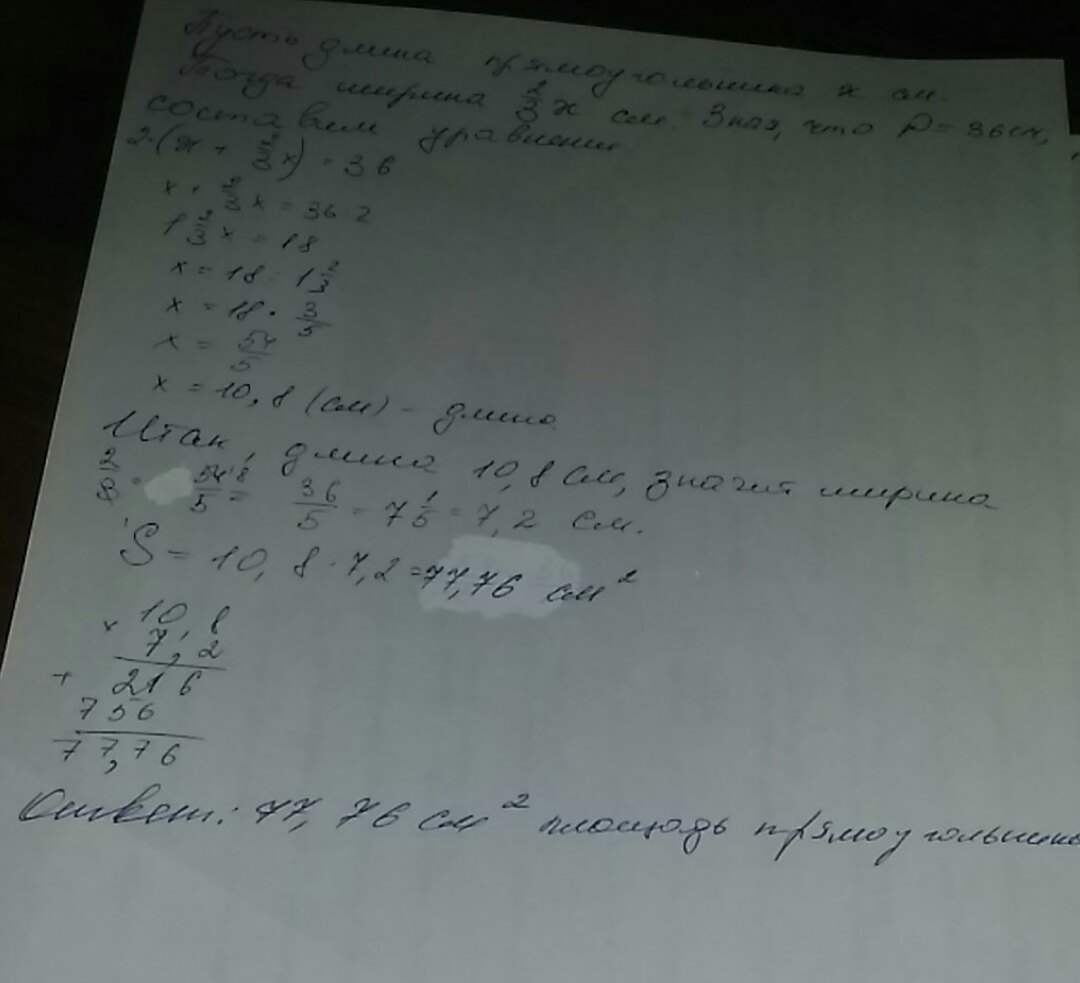 Пусть длина прямоугольника x см.
Тогда ширина 2/3 x см. Зная, что P = 36 см,
составим уравнение
2·(x + 2/3 x) = 36
x + 2/3 x = 36 : 2
1 2/3 x = 18
x = 18 : 1 2/3
x = 18 · 3/5
x = 54/5
x = 10,8 (см) - длина
Итак, длина 10,8 см, значит ширина
2/3 · 54/5 = 36/5 = 7 1/5 = 7,2 см.
S = 10,8 · 7,2 = 77,76 см²
× 10,8
7,2
+ 216
756
77,76
Ответ: 77,76 см² площадь прямоугольника